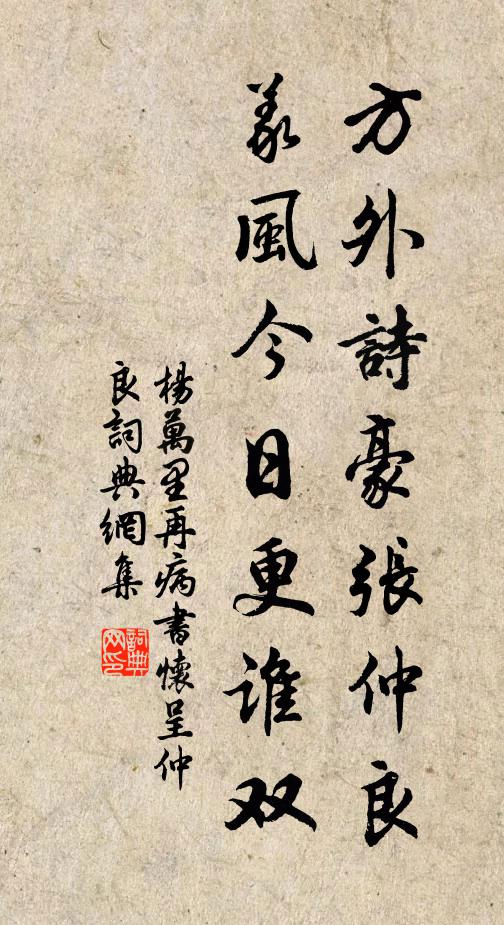 方外詩豪張仲良
義風今日更誰双
楊萬里再病書懷呈仲
良詞典網集
詞典网印